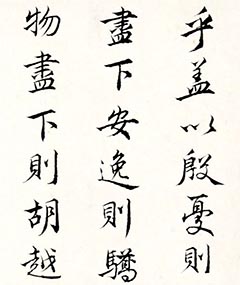 乎盖以殷憂則
盡下安逸則驕
物盡下則胡越